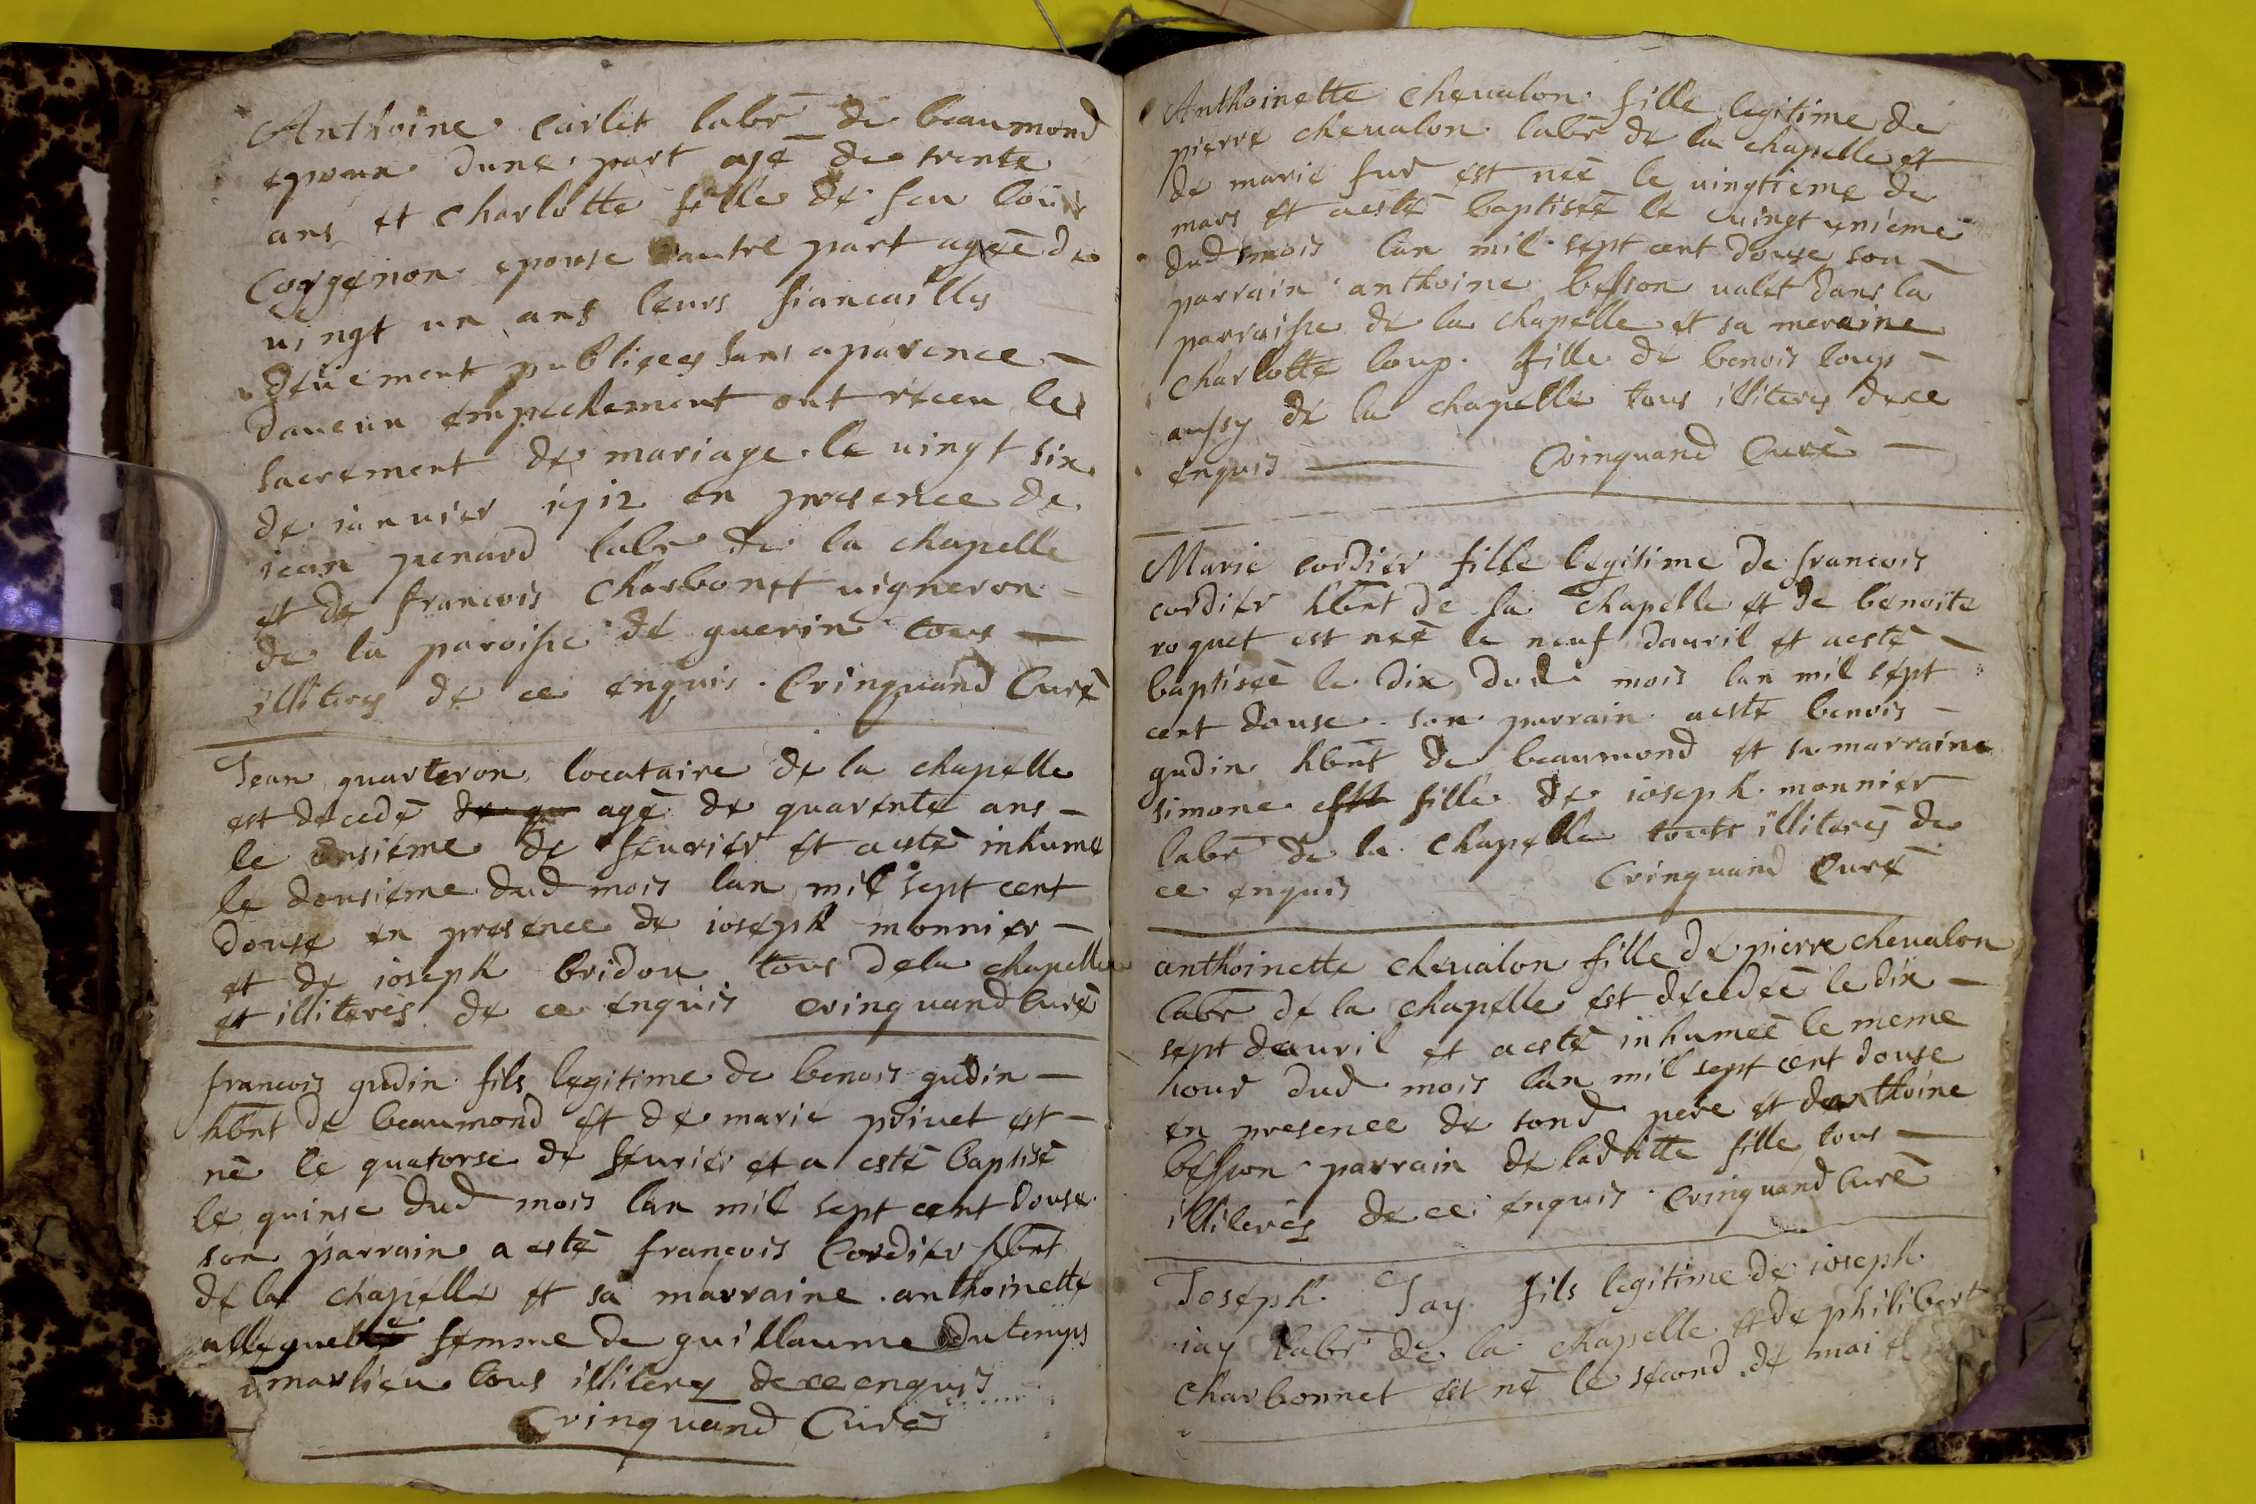 Anthoine carlet labr de beaumond
epoux dune part agé de trente
ans et charlotte fille de feu louis
Corgenon epouse dautre part ageé de
uingt un ans leurs fiancailles
deüement publieés sans aparence
daucun empechement ont receu le
sacrement de mariage le uingt six
de ianuier 1712 en presence de
iean penard labr de la chapelle
et de francois charbonet uigneron
de la paroisse de guerin tous
illiteres de ce enquis. Crinquand Curé
Jean quarteron locataire de la chapelle
est decedé de qu agé de quarente ans
le onsiéme de feurier et aesté inhumé
le dousiéme dud mois lan mil sept cent
douse en presence de ioseph monnier
et de ioseph bridon tous dela chapelle
et illiterés de ce enquis crinquand Curé
francois gudin fils legitime de benois gudin
hbnt de beaumond et de marie priuet est
né le quatorse de feurier et a esté baptisé
le quinse dud mois lan mil sept cent douse
son parrain a esté francois Cordier hbnt
de la chapelle et sa marraine anthoinette
femme de guillaume dutemps
marlieu tous illiteres dece enquis
Crinquand Curé
Anthoinette cheualon fille legitime de
pierre cheualon labr de la chapelle et
de marie fur est neé le uingtieme de
mars et aesté baptiseé le uingt uniéme
dud mois lan mil sept cent douse son
parrain anthoine besson ualet dans la
parroisse de la chapelle et sa meraine
Charlotte loup fille de benois loup
aussy de la chapelle tous illiteres dece
enquis Crinquand Curé
Marie cordier fille legitime de francois
cordier hbnt de la chapelle et de benoite
roquet est neé le neuf dauril et aesté
baptiseé le dix dud mois lan mil sept
cent douse son parrain aesté benois
gudin hbnt de beaumond et sa marraine
simone fille de ioseph monnier
labr de la chapelle touts illiterés de
ce enquis Crinquand Curé
anthoinette cheualon fille de pierre cheualon
labr de la chapelle est decedeé le dix
sept dauril et aesté inhumeé le meme
iour dud mois lan mil sept cent douse
en presence de sond pere et danthoine
besson parrain de laditte fille tous
illiterés de ce enquis crinquand Curé
Joseph Jay fils legitime de ioseph
iay labr de la chapelle et de philibert
charbonnet est né le second de mai et